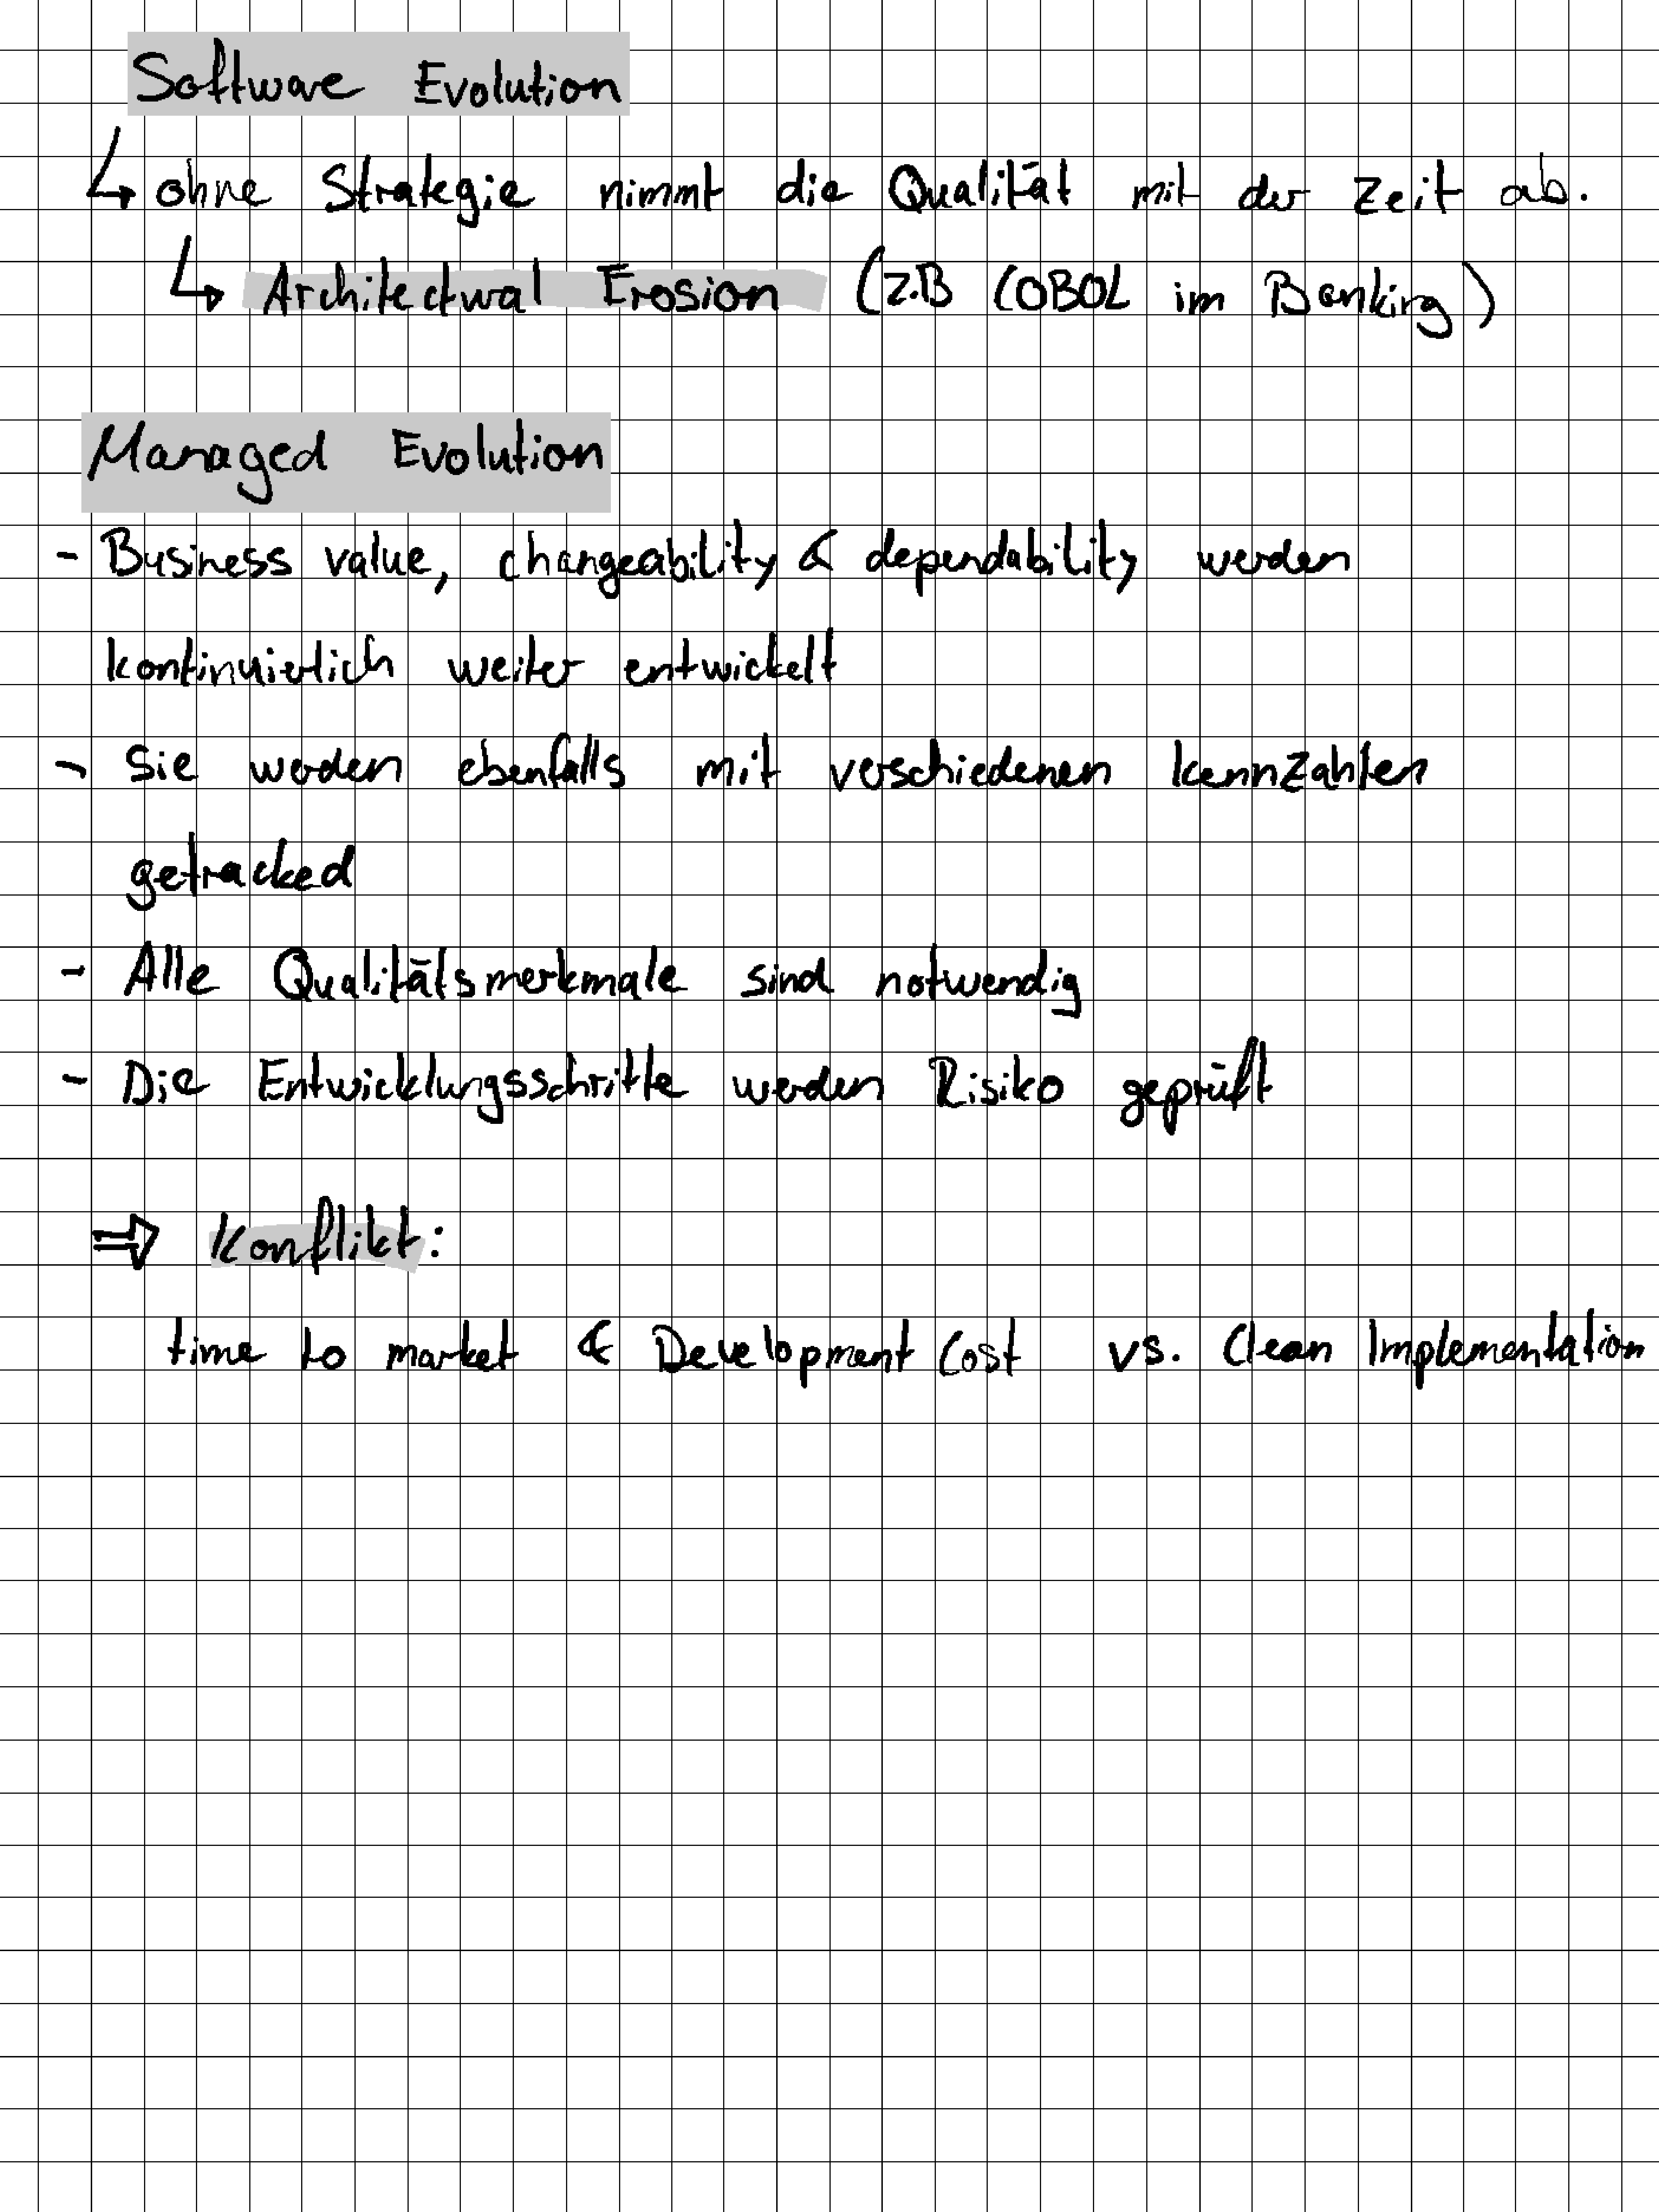 Software Evolution
↳ ohne Strategie nimmt die Qualität mit der Zeit ab.
↳ Architectural Erosion (z.B COBOL im Banking)
Managed Evolution
- Business value, changeability & dependability werden
kontinuierlich weiter entwickelt
- Sie werden ebenfalls mit verschiedenen Kennzahlen
getracked
- Alle Qualitätsmerkmale sind notwendig
- Die Entwicklungsschritte werden Risiko geprüft
⇒ Konflikt:
time to market & Development Cost vs. Clean Implementation